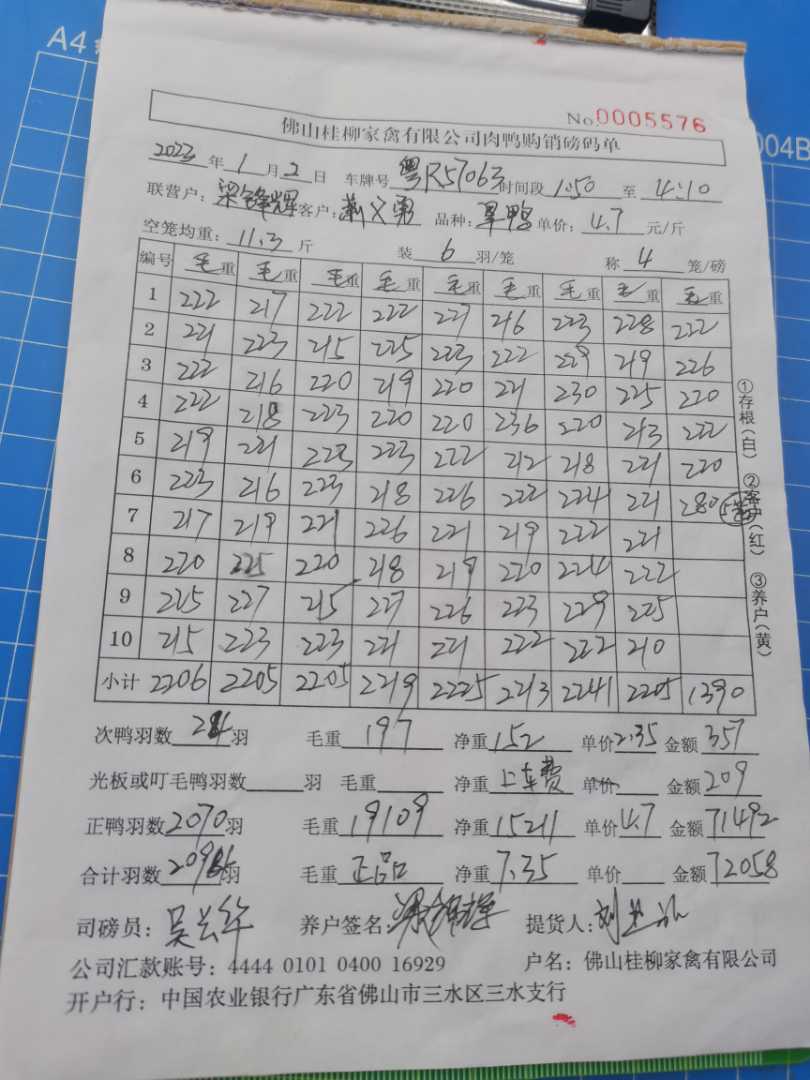 A4
004B
No.0005576
佛山桂柳家禽有限公司肉鸭购销磅码单
2023年1月2日 车牌号 粤R57063 时间段 1:50 至 4:10
联营户: 梁锋辉 客户: 品种: 单价: 4.7 元/斤
空笼均重: 11.3 斤 装 6 羽/笼 称 4 笼/磅
编号 毛重 毛重 毛重 毛重 毛重 毛重 毛重 毛重 毛重
1 222 217 222 222 227 216 223 228 222
2 221 223 215 225 223 222 229 219 226
3 222 216 220 219 220 221 230 225 220
4 222 218 223 220 220 236 220 213 222
5 219 221 223 223 222 212 218 221 220
6 223 216 223 218 226 222 224 221 280
7 217 219 221 226 221 219 222 221
8 220 225 220 218 219 220 224 222
9 225 227 215 227 226 223 229 225
10 215 223 223 221 221 222 222 210
小计 2206 2205 2205 2219 2225 2213 2241 2205 1390
①存根(白) ②客户(红) ③养户(黄)
次鸭羽数 羽 毛重 197 净重 152 单价 2.35 金额 357
光板或叮毛鸭羽数 羽 毛重 净重 上车费 单价 金额 209
正鸭羽数 2070 羽 毛重 19109 净重 15211 单价 4.7 金额 71492
合计羽数 羽 毛重 正品 净重 7.35 单价 金额 72058
司磅员: 吴兰华 养户签名: 提货人:
公司汇款账号: 4444 0101 0400 16929 户名: 佛山桂柳家禽有限公司
开户行: 中国农业银行广东省佛山市三水区三水支行